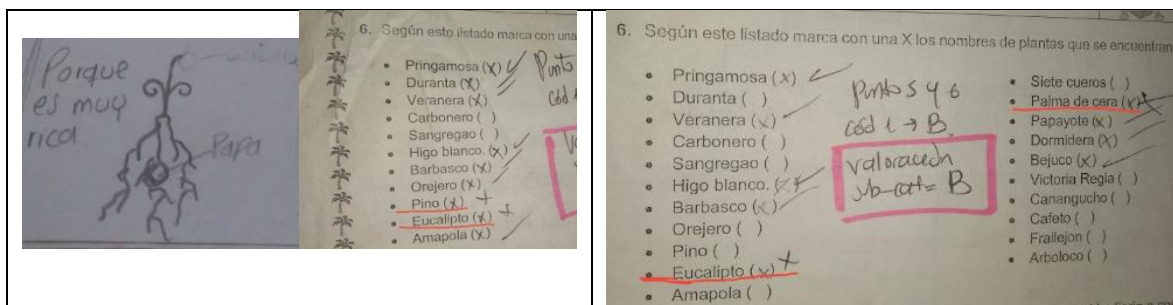 Porque
es muy
rica
Papa
6. Según este listado marca con una
• Pringamosa (X)
• Duranta (X)
• Veranera (X)
• Carbonero ( )
• Sangregao ( )
• Higo blanco. (X)
• Barbasco (X)
• Orejero (X)
• Pino (X)
• Eucalipto (X)
• Amapola (X)
Punto
cód
6. Según este listado marca con una X los nombres de plantas que se encuentran
• Pringamosa (X)
• Duranta ( )
• Veranera (X)
• Carbonero ( )
• Sangregao ( )
• Higo blanco. (X)
• Barbasco (X)
• Orejero ( )
• Pino ( )
• Eucalipto (X)
• Amapola ( )
Puntos 5 y 6
cód t → B.
valoración
sub-cat= B
• Siete cueros ( )
• Palma de cera (X)
• Papayote (X)
• Dormidera (X)
• Bejuco (X)
• Victoria Regia ( )
• Canangucho ( )
• Cafeto ( )
• Frailejon ( )
• Arboloco ( )